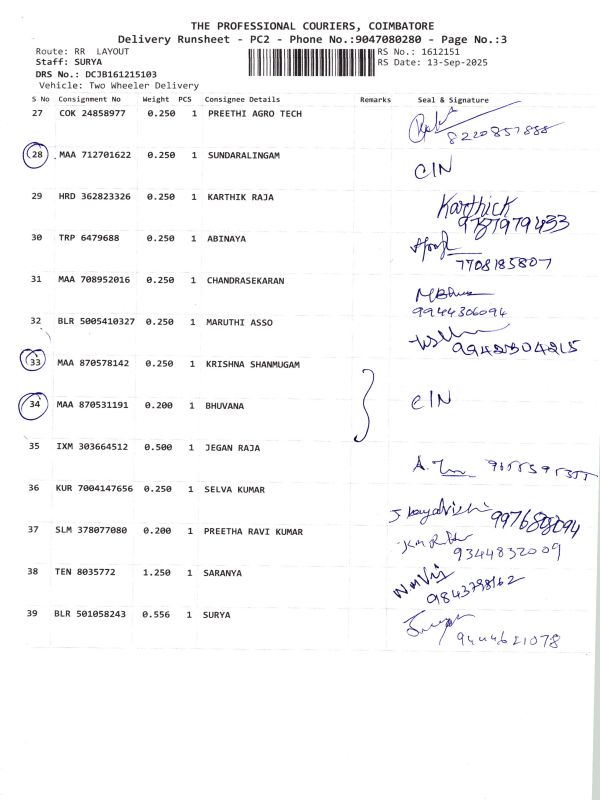 THE PROFESSIONAL COURIERS, COIMBATORE
Delivery Runsheet - PC2 - Phone No.:9047080280 - Page No.:3
Route: RR LAYOUT
RS No.: 1612151
Staff: SURYA
RS Date: 13-Sep-2025
DRS No.: DCJB161215103
Vehicle: Two Wheeler Delivery
S No Consignment No Weight PCS Consignee Details Remarks Seal & Signature
27 COK 24858977 0.250 1 PREETHI AGRO TECH
8220857888
28 MAA 712701622 0.250 1 SUNDARALINGAM CIN
29 HRD 362823326 0.250 1 KARTHIK RAJA Karthick
9787979433
30 TRP 6479688 0.250 1 ABINAYA
7708185807
31 MAA 708952016 0.250 1 CHANDRASEKARAN
9944306094
32 BLR 5005410327 0.250 1 MARUTHI ASSO
9942304215
33 MAA 870578142 0.250 1 KRISHNA SHANMUGAM
34 MAA 870531191 0.200 1 BHUVANA CIN
35 IXM 303664512 0.500 1 JEGAN RAJA
36 KUR 7004147656 0.250 1 SELVA KUMAR
37 SLM 378077080 0.200 1 PREETHA RAVI KUMAR
9344832009
38 TEN 8035772 1.250 1 SARANYA
9843798162
39 BLR 501058243 0.556 1 SURYA
9444621078